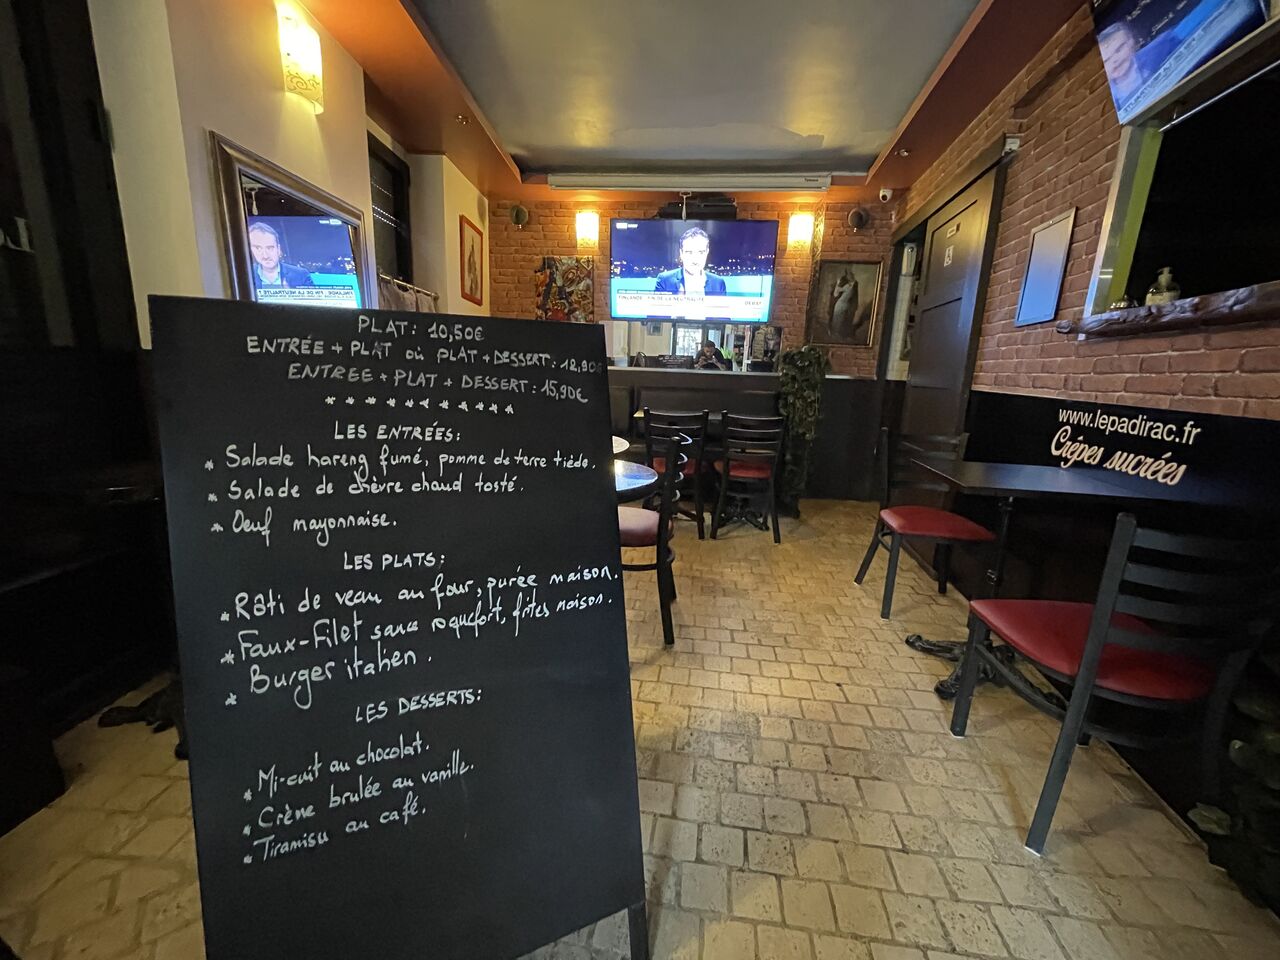 PLAT: 10,50€
ENTRÉE + PLAT OU PLAT + DESSERT: 12,90€
ENTREE + PLAT + DESSERT: 15,90€
**********
LES ENTRÉES:
* Salade hareng fumé, pomme de terre tiède.
* Salade de chèvre chaud tosté.
* Oeuf mayonnaise.
LES PLATS:
* Rôti de veau au four, purée maison.
* Faux-Filet sauce roquefort, frites maison.
* Burger italien.
LES DESSERTS:
* Mi-cuit au chocolat.
* Crème brulée au vanille.
* Tiramisu au café.
FINLANDE : FIN DE LA NEUTRALITÉ
DEBAT
www.lepadirac.fr
Crêpes sucrées